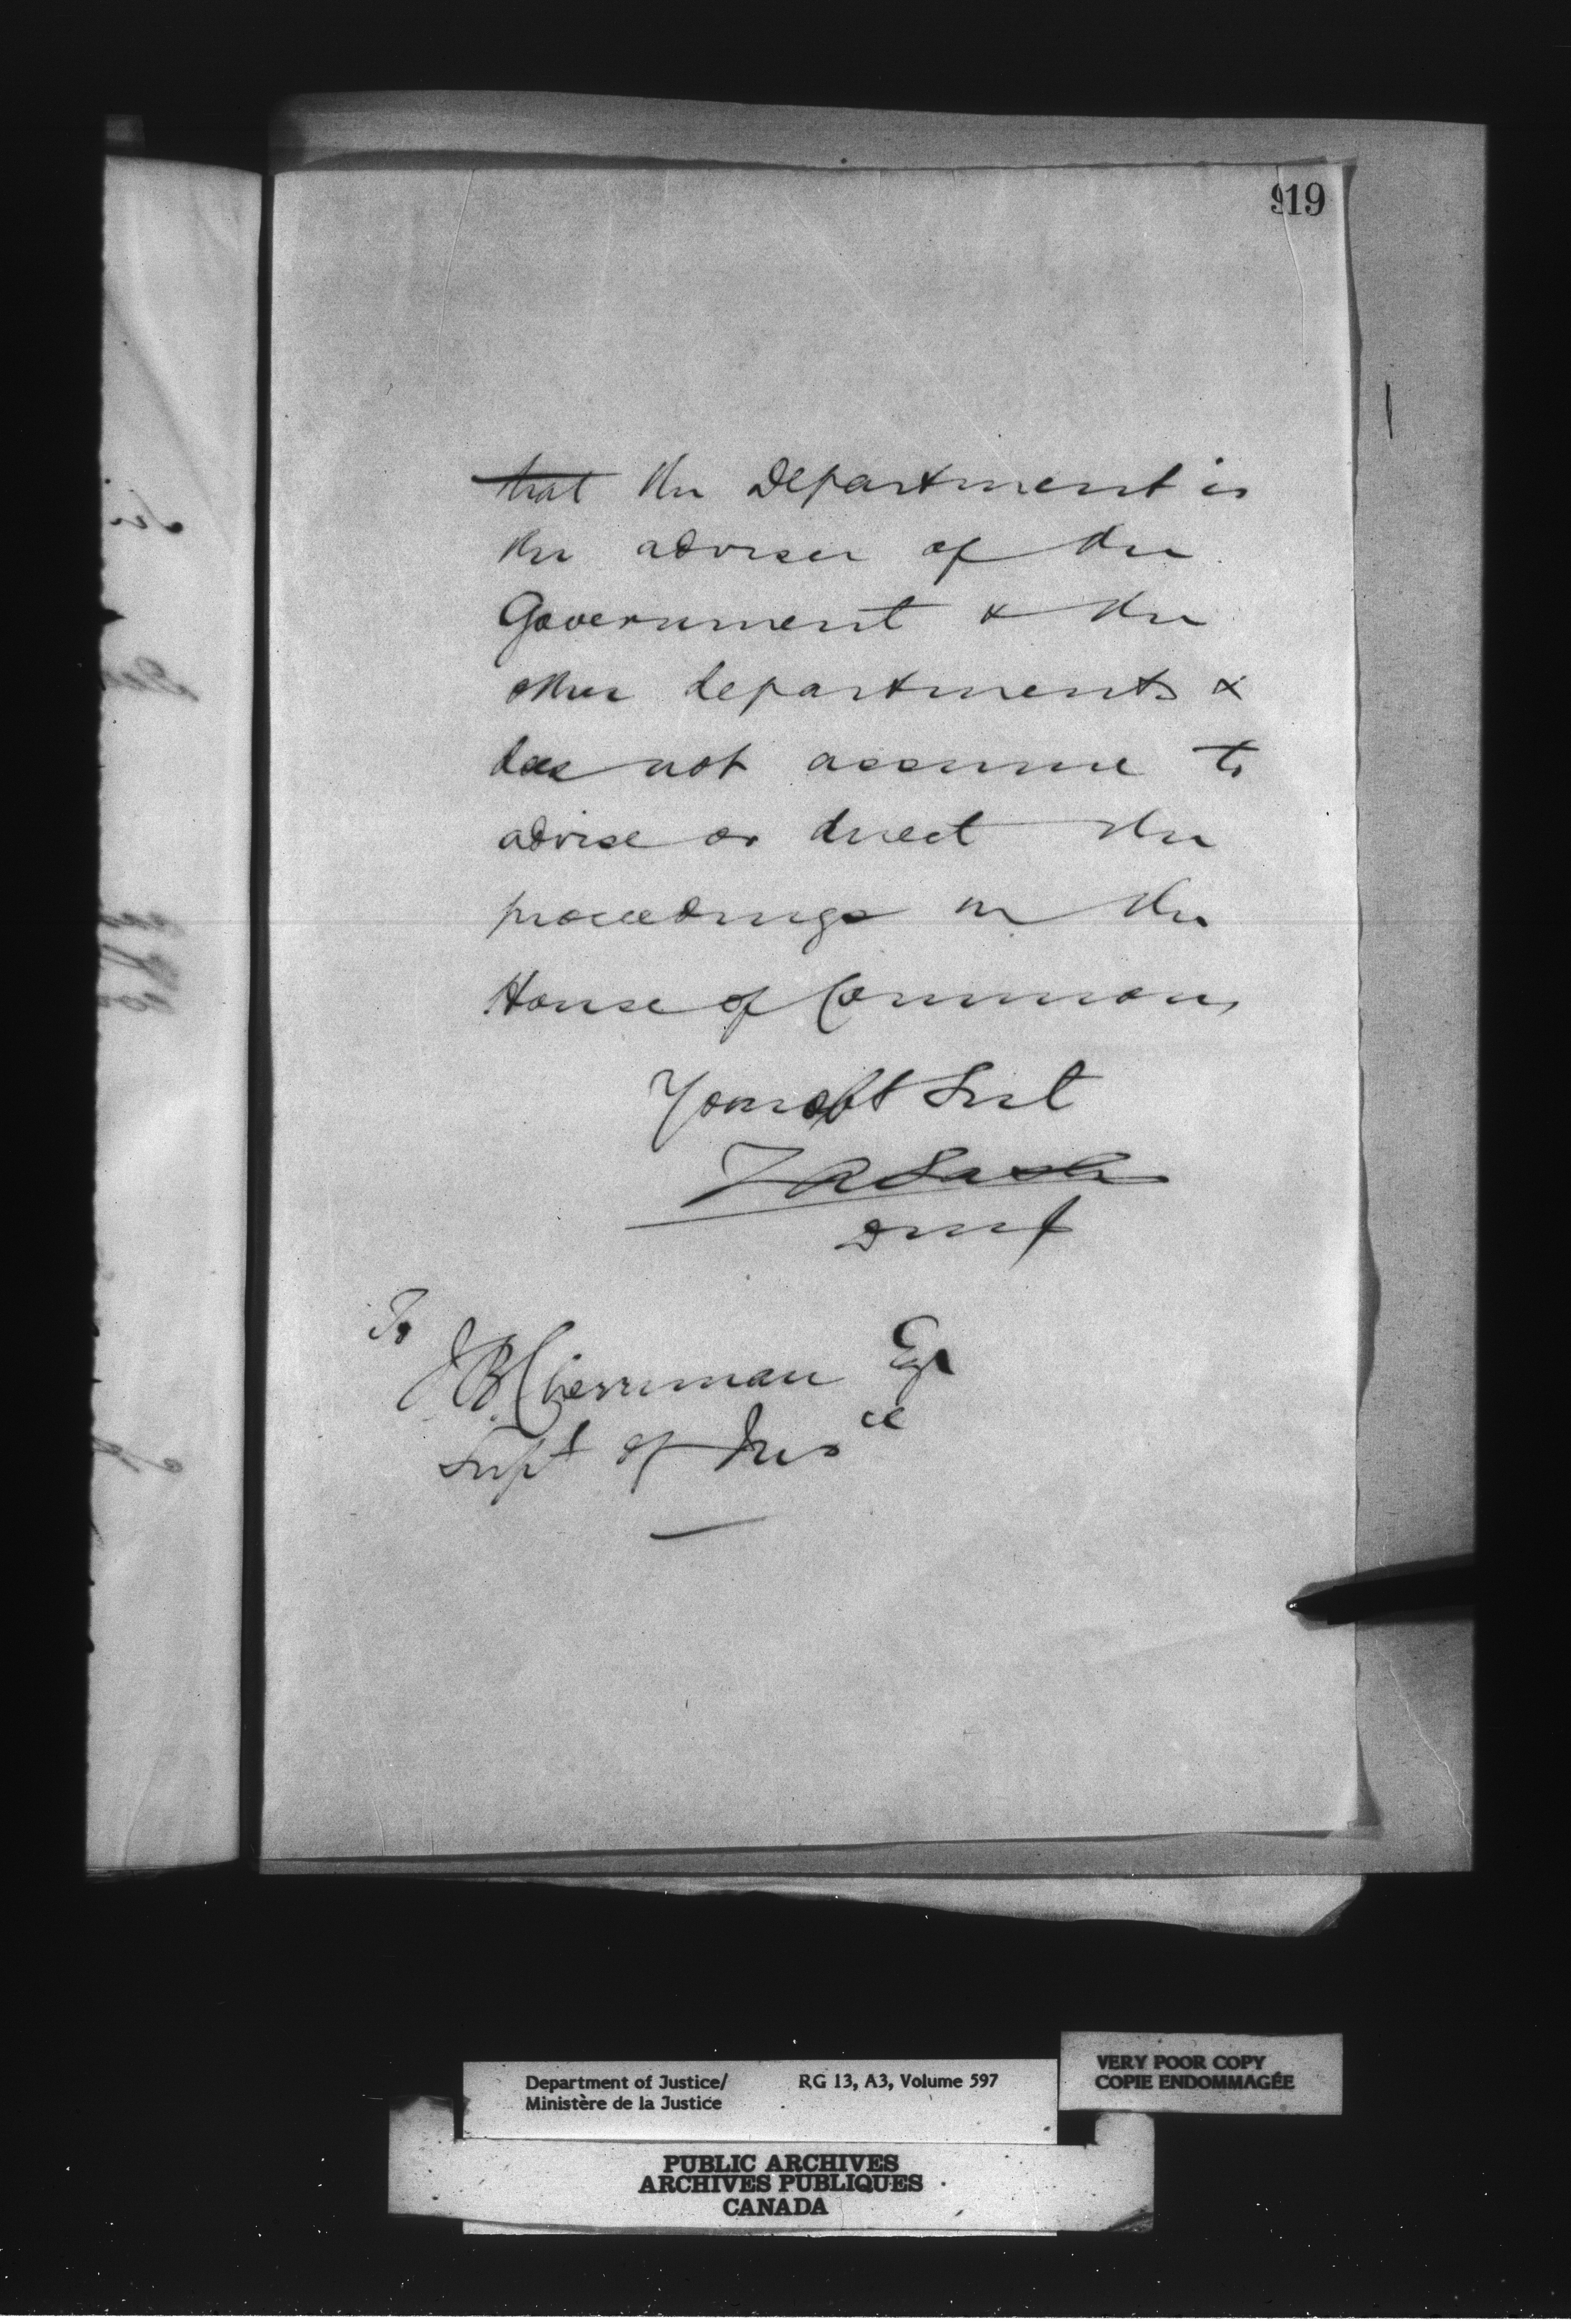 919
that the Department is
the adviser of the
Government & the
other departments &
does not assume to
advise or direct the
proceedings in the
House of Commons
Your obt Svt
ZA Lash
DMJ
To
JB Cherriman Esqr
Supt of Insce
Department of Justice/
Ministère de la Justice
RG 13, A3, Volume 597
VERY POOR COPY
COPIE ENDOMMAGÉE
PUBLIC ARCHIVES
ARCHIVES PUBLIQUES
CANADA